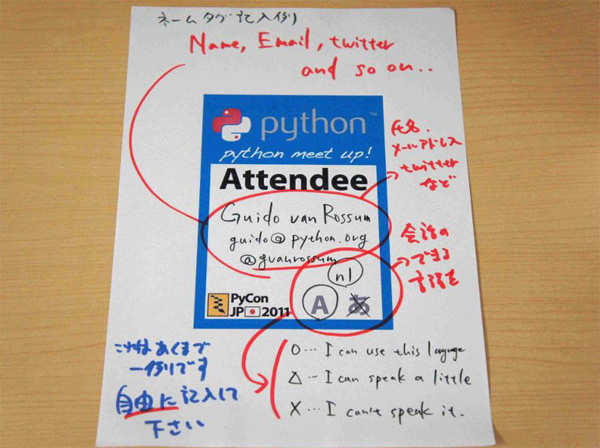 ネームタグ記入例
Name, Email, twitter
and so on..
python
python meet up!
Attendee
Guido van Rossum
guido@python.org
@gvanrossum
氏名・
メールアドレス
twitter
など
会話の
できる
言語を
nl
A
あ
PyCon
JP 2011
○…I can use this laguge
△…I can speak a little
X…I can't speak it.
これはあくまで
一例です
自由に記入して
下さい